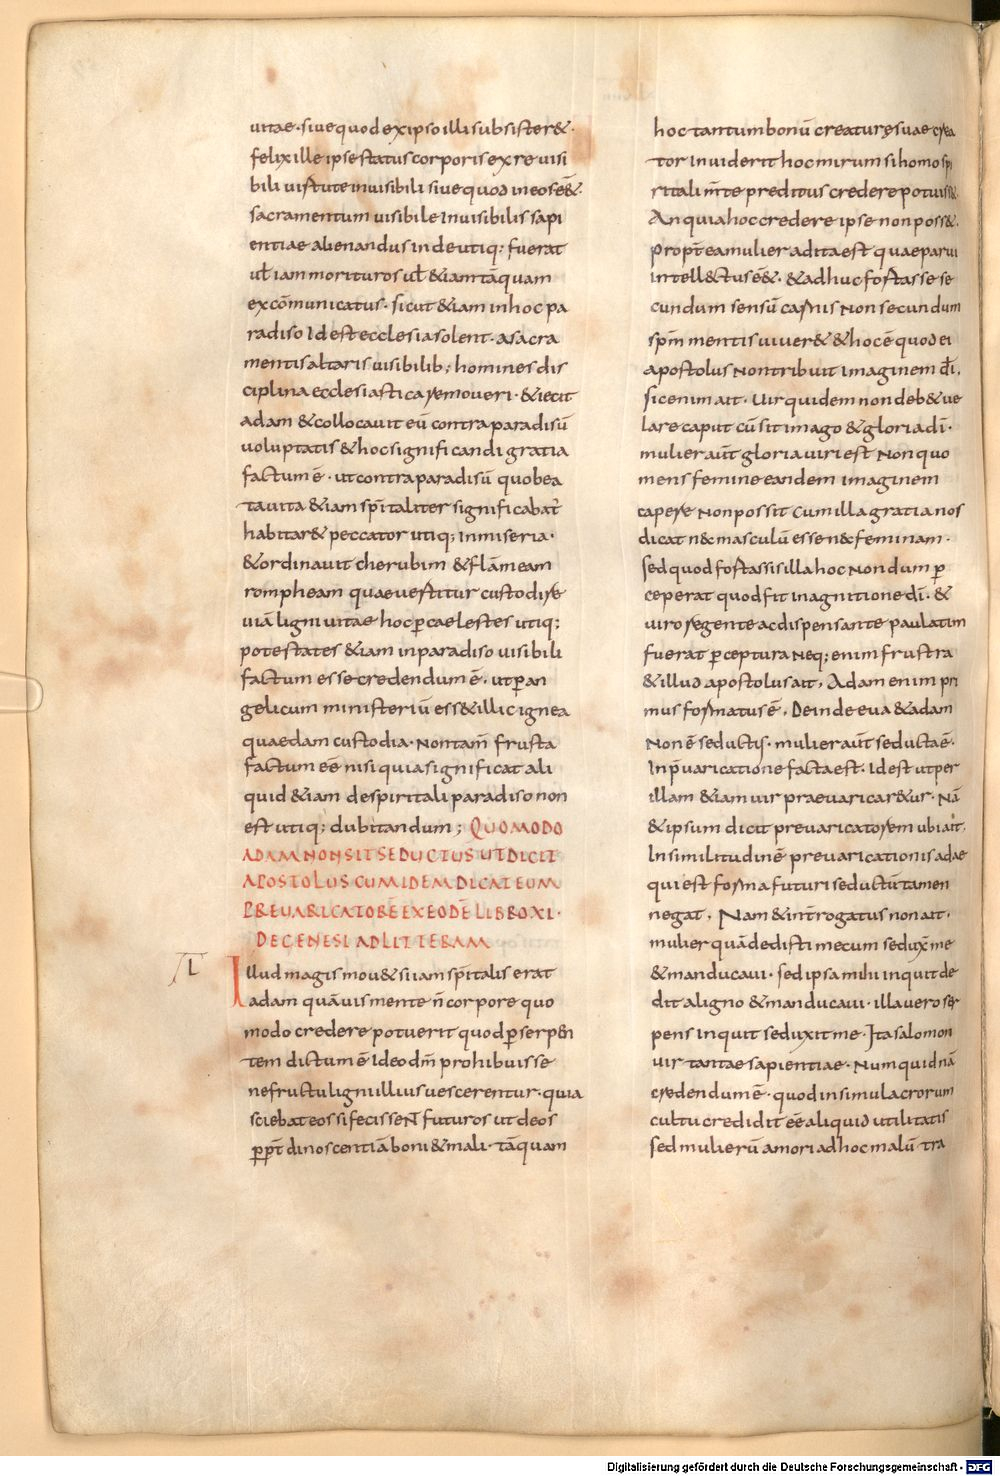 uitae · siue quod ex ipso illi subsister& ·
felix ille ipse status corporis ex re uisi
bili uirtute inuisibili siue quod in eo ss&̄ ·
sacramentum uisibile Inuisibilis sapi
entiae alienandus inde utiq; fuerat
ut̄ iam morituros ut̄ &iam tāquam
excōmunicatus · sicut &iam in hoc pa
radiso Id est ecclesia solent · a sacra
mentis altaris uisibilib; homines dis
ciplina ecclesiastica remoueri · & iecit
adam & collocauit eū contra paradisū
uoluptatis & hoc significandi gratia
factum ē · ut contra paradisū quo bea
ta uita &iam sp̄italiter significabat᷑
habitar& peccator utiq; In miseria ·
& ordinauit cherubim & flāmeam
rompheam quae uestitur custodire
uiā ligni uitae hoc p̄ caelestes utiq;
potestates &iam in paradiso uisibili
factum esse credendum ē · ut p̄ an
gelicum ministeriū ess& illic ignea
quaedam custodia · Non tam̄ frusta
factum eē nisi quia significat ali
quid &iam de spiritali paradiso non
est utiq; dubitandum ; QUOMODO
ADAM NON SIT SEDUCTUS UT DICIT
APOSTOLUS CUM IDEM DICAT EUM
PREUARICATORĒ EX EODĒ LIBRO XI ·
DE GENESI AD LITTERAM
L
Illud magis mou& si iam sp̄italis erat
adam quāuis mente n̄ corpore quo
modo credere potuerit quod p̄ serpen
tem dictum ē Ideo dm̄ prohibuisse
ne fructu ligni illius uescerentur · quia
sciebat eos si fecissent̄ futuros ut deos
p̄pt̄ dinoscentiā boni & mali · tāquam
hoc tantum bonū creaturę suae crea
tor Inuiderit hoc mirum si homo spi
ritali m̄te preditus credere potuiss& ·
An quia hoc credere ipse non poss& ·
propt̄ea mulier adita est quae parui
Intell&ctus ēē& · & adhuc fortasse se
cundum sensū carnis Non secundum
sp̄m mentis uiuer& & hoc ē quod ei
apostolus Non tribuit Imaginem dī ·
sic enim ait · Uir quidem non deb& ue
lare caput cū sit imago & gloria dī ·
mulier aūt gloria uiri est Non quo
mens femine eandem imaginem
capere Non possit Cum illa gratia nos
dicat n&c masculū esse n&c feminam ·
sed quod fortassis illa hoc Non dum p̄
ceperat quod fit in agnitione dī · &
uiro regente ac dispensante paulatim
fuerat p̄ceptura Neq; enim frustra
& illud apostolus ait · Adam enim pri
mus formatus ē · Deinde eua & adam
Non ē seductus · mulier aūt seducta ē ·
In p̄uaricatione facta est · Id est ut per
illam &iam uir praeuaricar&ur · Nā
& ipsum dicit preuaricatorem ubi ait ·
In similitudinē preuaricationis adae
qui est forma futuri seductū tamen
negat · Nam & int̄rogatus non ait ·
mulier quā dedisti mecum seduxit me
& manducaui · sed ipsa mihi inquit de
dit a ligno & manducaui · illa uero ser
pens inquit seduxit me · Ita salomon
uir tantae sapientiae · Num quid nā
credendum ē · quod in simulacrorum
cultu credidit eē aliquid utilitatis
sed mulierū amori ad hoc malū tra
Digitalisierung gefördert durch die Deutsche Forschungsgemeinschaft - DFG